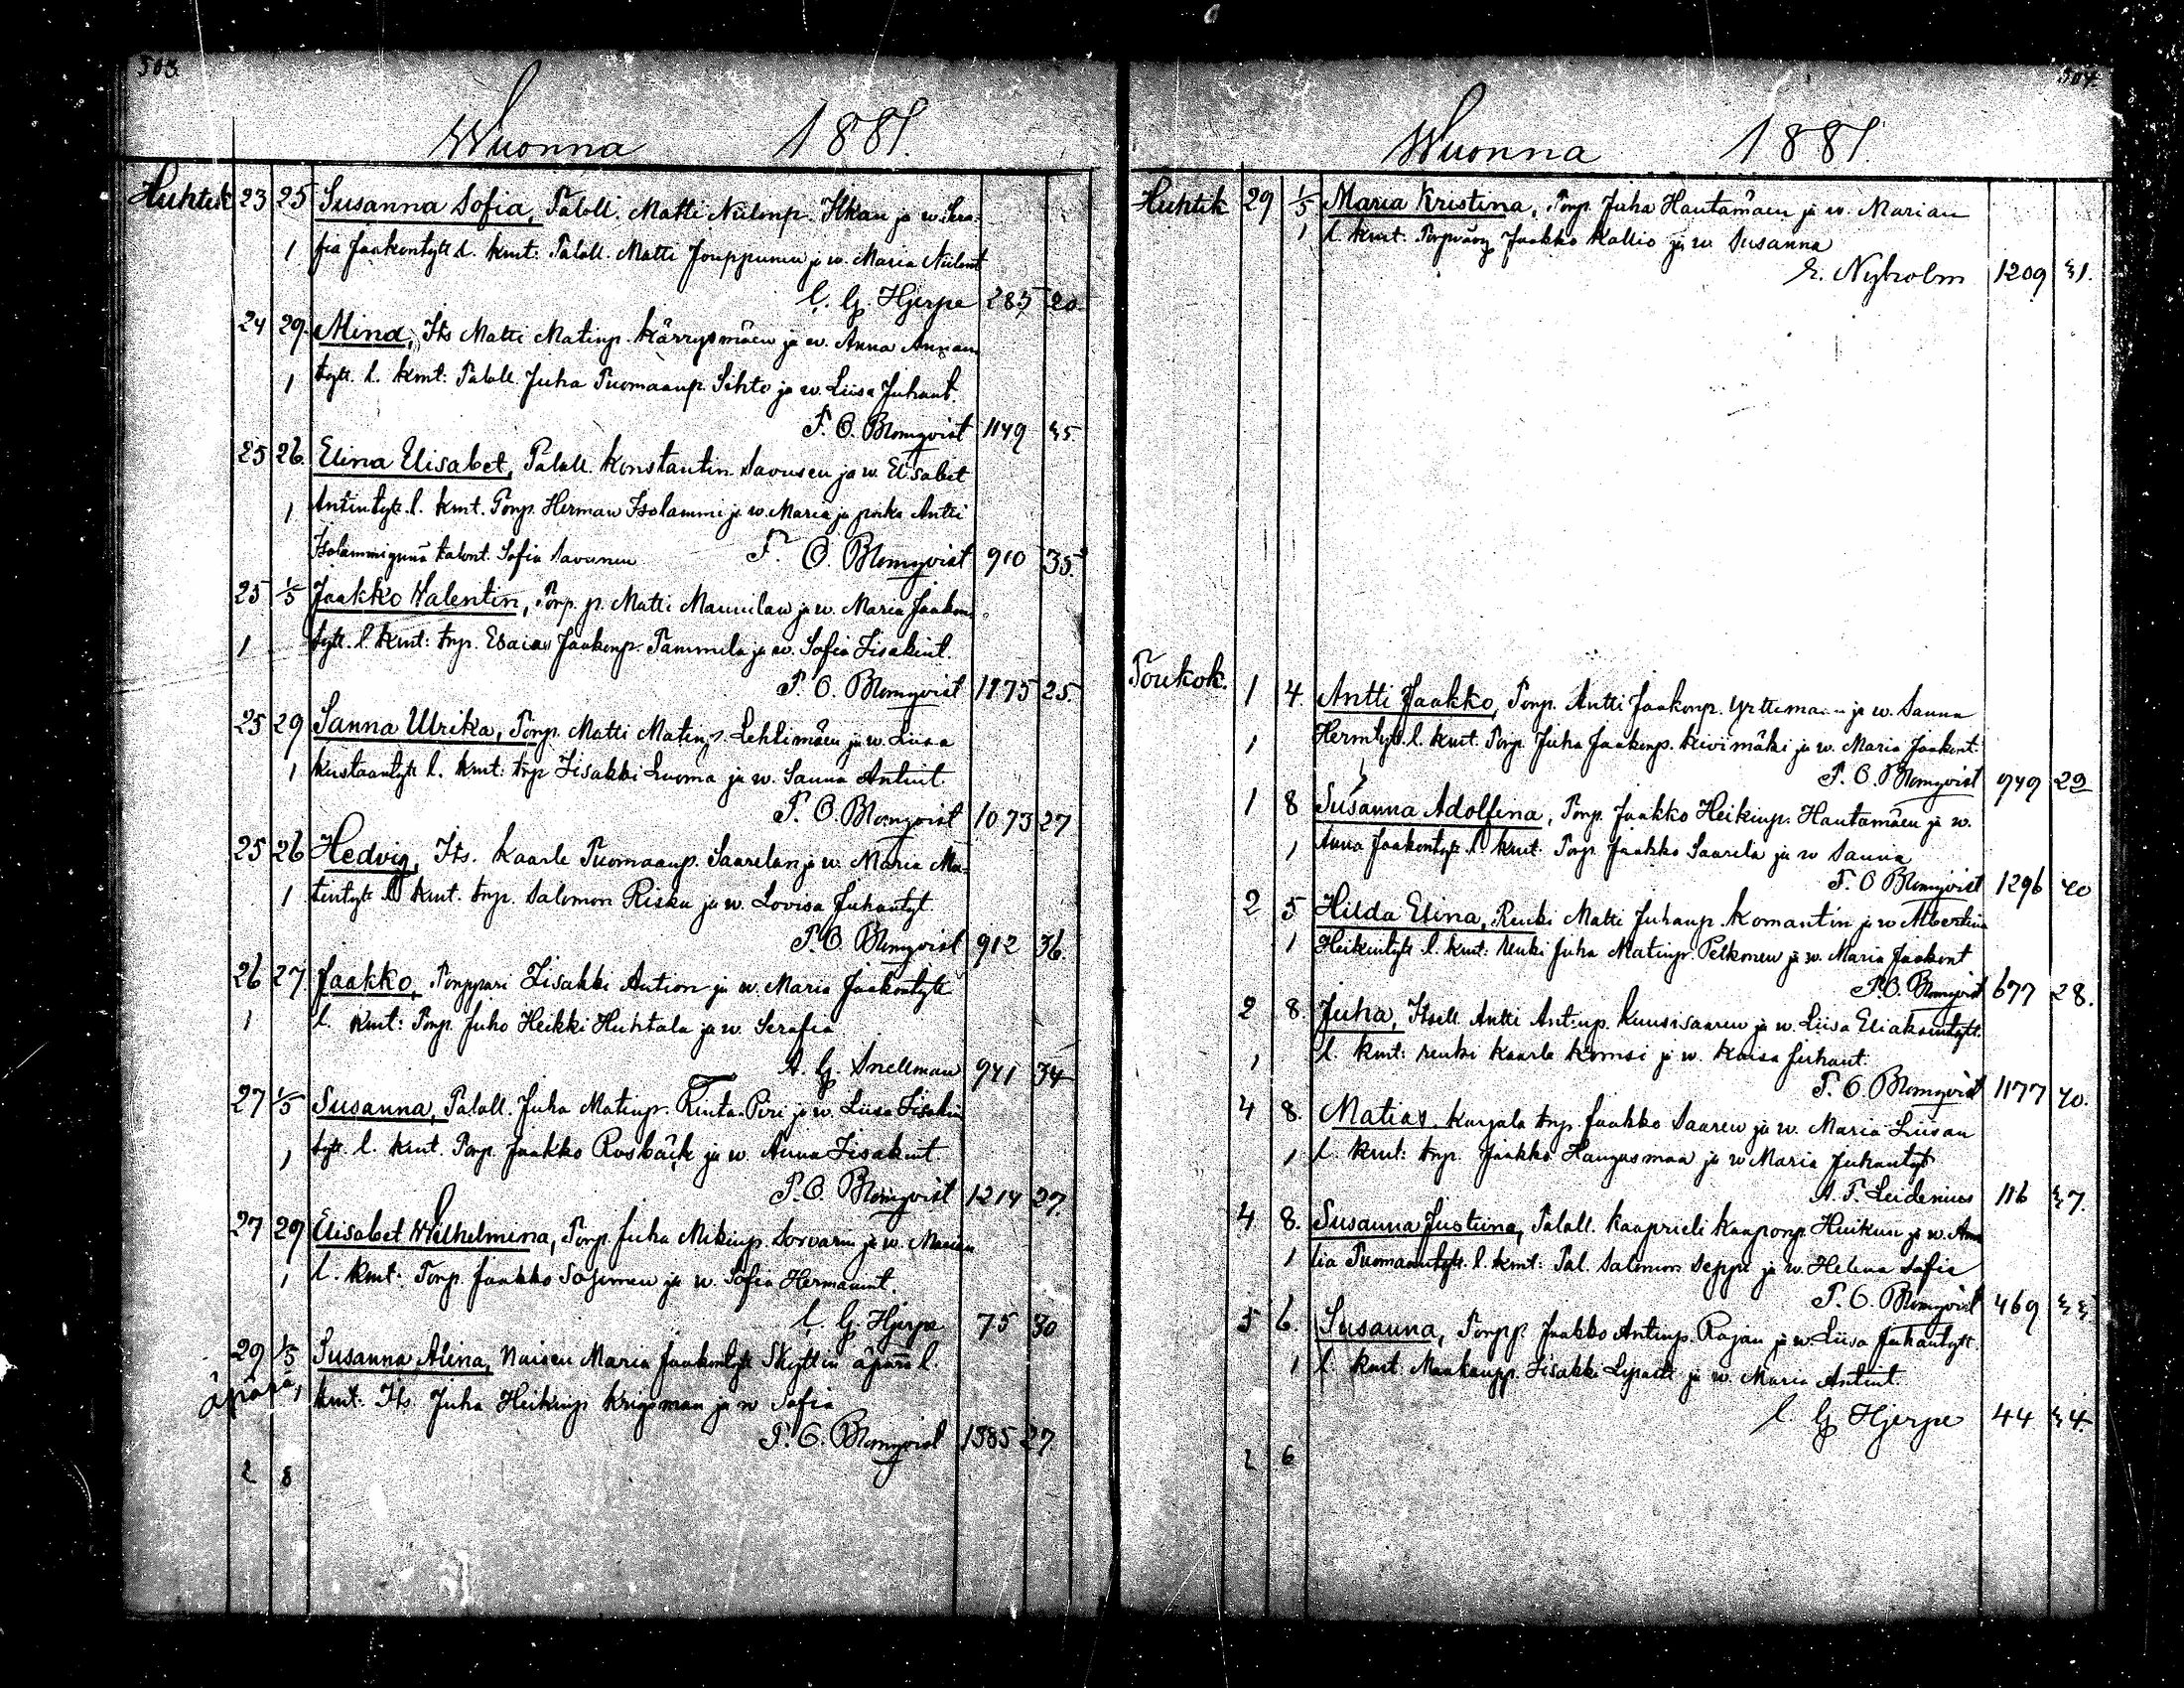 503.
Wuonna 1881.
Huhtik 23 25 Susanna Sofia, Taloll. Matti Niilonp. Ilkan ja w. Sera-
1 fia Jaakontytt. l. kmt: Taloll. Matti Jouppunen ja w. Maria Niilont
C. G. Hjerpe 285 20.
24 29. Mina, Its Matti Matinp. Kärrysmäen ja w. Anna Annan
1 tytt. l. kmt: Taloll. Juha Tuomaanp. Sihto ja w. Liisa Juhant.
F. O. Blomqvist 1149 25
25 26. Elina Elisabet, Taloll. Konstantin Savusen ja w. Elisabet
1 Antintytt. l. kmt. Torp. Herman Isolammi ja w. Maria ja poika Antti
Isolammi ynnä talont. Sofia Savunen F. O. Blomqvist 910 35.
25 1/5 Jaakko Valentin, Torp. p. Matti Maunulan ja w. Maria Jaakon
1 tytt. l. kmt: trp. Esaias Jaakonp. Tammela ja w. Sofia Iisakint.
F. O. Blomqvist 1175 25.
25 29 Sanna Ulrika, Torp. Matti Matinp. Lehtimäen ja w. Liisa
1 Kustaantytt l. kmt: trp Iisakki Luoma ja w. Sanna Antint
F. O. Blomqvist 1073 27
25 26 Hedvig, Its. Kaarle Tuomaanp. Saarelan ja w. Maria Ma-
1 tintytt l kmt. trp. Salomon Risku ja w. Lovisa Juhantyt.
F. O. Blomqvist 912 36.
26 27. Jaakko, Torppari Iisakki Aution ja w. Maria Jaakontytt
1 l. kmt: Torp. Juho Heikki Huhtala ja w. Serafia
A. G. Snellman 941 34
27 1/5 Susanna, Taloll. Juha Matinp. Rinta-Piri ja w. Liisa Iisakin
1 tytt. l. kmt. Torp. Jaakko Rosbäck ja w. Anna Iisakint
F. O. Blomqvist 1214 27.
27 29 Elisabet Wilhelmina, Torp. Juha Mikinp. Sorvarin ja w. Marian
1 l. kmt: Torp. Jaakko Salminen ja w. Sofia Hermannt.
C. G. Hjerpe 75 30
29 1/5 Susanna Alina, Naisen Maria Jaakontytt Skyttin äpärä l.
äpärä, kmt. Its. Juha Heikinp Krigsman ja w Sofia
F. O. Blomqvist 1385 27.
2 8
504.
Wuonna 1881.
Huhtik 29 1/5 Maria Kristina, Torp. Juha Hautamäen ja w. Marian
1 l. kmt. Torpvävy Jaakko Kallio ja w. Susanna
E. Nyholm 1209 21.
Toukok. 1 4 Antti Jaakko, Torp. Antti Jaakonp. ja w. Sanna
1 Hermtytt. l. kmt. Torp. Juha Jaakonp. Kivimäki ja w. Maria Jaakont.
F. O. Blomqvist 949 29
1 8 Susanna Adolfina, Torp. Jaakko Heikinp. Hautamäen ja w.
1 Anna Jaakontytt. l kmt: Torp. Jaakko Saarela ja w Sanna
F. O Blomqvist 1296 40
2 5 Hilda Elina, Renki Matti Juhanp. Komantin ja w Albertina
1 Heikintytt l. kmt: renki Juha Matinp. Pelkonen ja w. Maria Jaakont
F. O. Blomqvist 677 28.
2 8. Juha, Itsell. Antti Antinp. Kuusisaaren ja w. Liisa Eliakimtytt.
1 l. kmt: renki Kaarle Komsi ja w. Kaisa Juhant.
F. O. Blomqvist 1177 40.
4 8. Matias, Karjala trp. Jaakko Saaren ja w. Maria Liisan
1 l. kmt: trp. Jaakko Haugasmaa ja w Maria Juhantyt
A. F. Leidenius 116 27.
4 8. Susanna Justiina, Talall. Kaaprieli Kaaponp. Huikun ja w. Ama
1 lia Tuomaantytt. l. kmt: Tal. Salomon Seppä ja w. Helena Sofia
F. O. Blomqvist 469 22
5 6. Susanna, Torpp. Jaakko Antinp. Rajan ja w. Liisa Juhantytt.
1 l. kmt. Maakaupp. Iisakki Lypatti ja w. Maria Antint.
C. G Hjerpe 44 24.
2 6